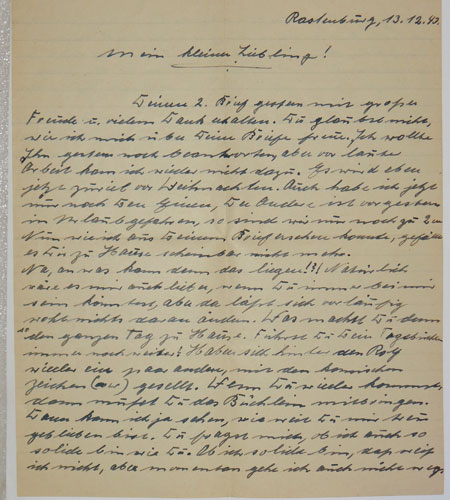 Rastenburg, 13.12.40.
Mein kleiner Liebling!
Deinen 2. Brief gestern mit großer
Freude u. vielem Dank erhalten. Du glaubst nicht,
wie ich mich über Deine Briefe freue. Ich wollte
Ihn gestern noch beantworten, aber vor lauter
Arbeit kam ich wieder nicht dazu. Es wird eben
jetzt zuviel vor Weihnachten. Auch habe ich jetzt
nur noch den Einen, der Andere ist vorgestern
in Urlaub gefahren, so sind wir nur noch zu 2en
Nun wie ich aus Deinem Brief ersehen konnte, gefällt
es Dir zu Hause scheinbar nicht mehr.
Na, an was kann denn das liegen!?! Natürlich
wäre es mir auch lieber, wenn Du immer bei mir
sein könntest, aber da läßt sich vorläufig
wohl nichts daran ändern. Was machst Du denn
den ganzen Tag zu Hause. Führst Du Dein Tagebüchlein
immer noch weiter? Haben sich hinter den
wieder ein paar andere, mit den komischen
Zeichen gesellt. Wenn Du wieder kommst,
dann mußt Du das Büchlein mitbringen.
Dann kann ich ja sehen, wie weit Du mir treu
geblieben bist. Du fragst mich, ob ich auch so
solide bin wie Du. Ob ich solide bin, das weiß
ich nicht, aber momentan gehe ich auch nicht weg.